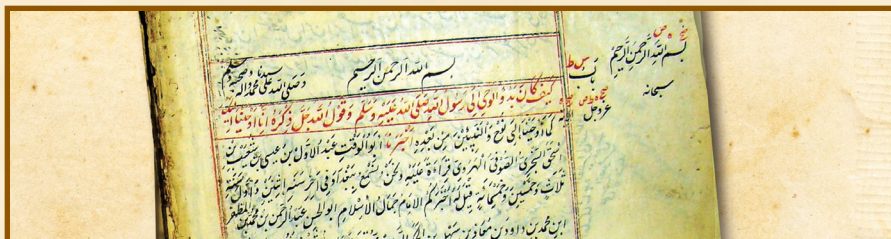 بسم الله الرحمن الرحيم وصلى الله على سيدنا محمد وآله وصحبه وسلم
كيف كان بدو الوحي إلى رسول الله صلى الله عليه وسلم وقول الله جل ذكره إنا أوحينا إليك
كما أوحينا إلى نوح والنبيين من بعده أخبرنا أبو الوقت عبد الأول بن عيسى بن شعيب بن
السجزي الصوفي الهروي قراءة عليه ونحن نسمع ببغداد في آخر سنة اثنتين وأول سنة
ثلاث وخمسين وخمسمائة قيل له أخبركم الامام جمال الاسلام أبو الحسن عبد الرحمن بن محمد بن المظفر
ابن محمد بن داود بن معاذ بن سهل بن الحكم
بسم الله الرحمن الرحيم
باب
سبحانه
عز وجل